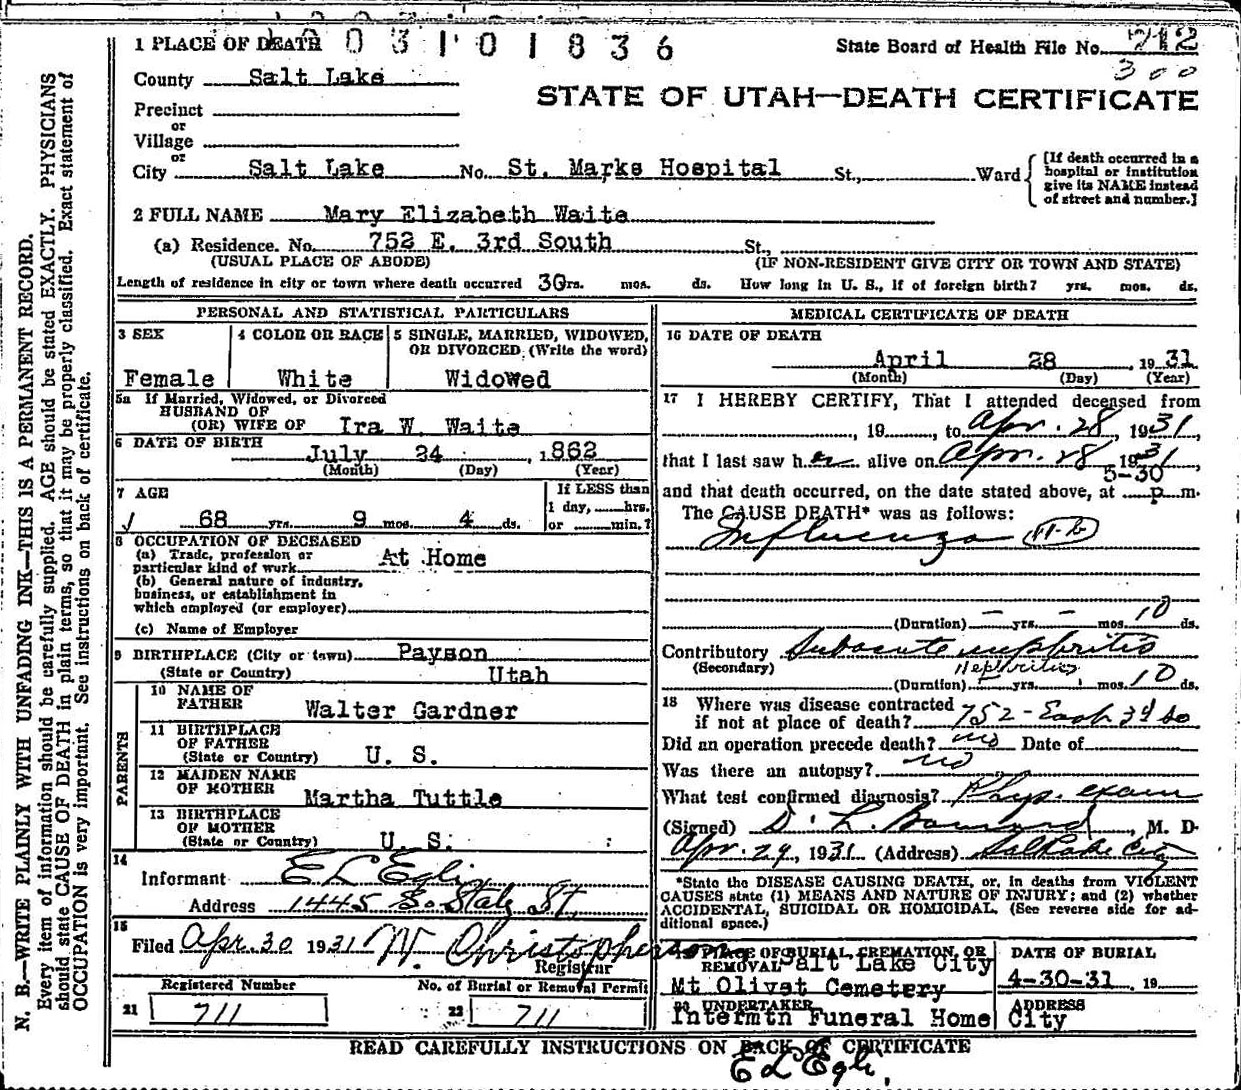 1 PLACE OF DEATH 0 0 3 1 0 1 8 3 6 State Board of Health File No. 712
300
County Salt Lake
STATE OF UTAH—DEATH CERTIFICATE
Precinct
or
Village
or
City Salt Lake No. St. Marks Hospital St., Ward
[If death occurred in a
hospital or institution
give its NAME instead
of street and number.]
2 FULL NAME Mary Elizabeth Waite
(a) Residence. No. 752 E. 3rd South St.,
(USUAL PLACE OF ABODE) (IF NON-RESIDENT GIVE CITY OR TOWN AND STATE)
Length of residence in city or town where death occurred rs. mos. ds. How long in U. S., if of foreign birth? yrs. mos. ds.
PERSONAL AND STATISTICAL PARTICULARS
3 SEX
Female
4 COLOR OR RACE
White
5 SINGLE, MARRIED, WIDOWED,
OR DIVORCED (Write the word)
Widowed
5a If Married, Widowed, or Divorced
HUSBAND OF
(OR) WIFE OF Ira W. Waite
6 DATE OF BIRTH
July 24, 1862
(Month) (Day) (Year)
7 AGE
68 yrs. 9 mos. 4 ds.
If LESS than
1 day, hrs.
or min.?
8 OCCUPATION OF DECEASED
(a) Trade, profession or
particular kind of work At Home
(b) General nature of industry,
business, or establishment in
which employed (or employer)
(c) Name of Employer
9 BIRTHPLACE (City or town) Payson
(State or Country) Utah
PARENTS
10 NAME OF
FATHER Walter Gardner
11 BIRTHPLACE
OF FATHER
(State or Country) U. S.
12 MAIDEN NAME
OF MOTHER Martha Tuttle
13 BIRTHPLACE
OF MOTHER
(State or Country) U. S.
14
Informant E L Egli
Address 1445 So. State St.
15
Filed Apr. 30 1931 W. Christopherson
Registrar
Registered Number No. of Burial or Removal Permit
21 711 22 711
MEDICAL CERTIFICATE OF DEATH
16 DATE OF DEATH
April 28, 1931
(Month) (Day) (Year)
17 I HEREBY CERTIFY, That I attended deceased from
, 19 , to Apr. 28, 1931,
that I last saw her alive on Apr. 28, 1931,
5-30
and that death occurred, on the date stated above, at p m.
The CAUSE DEATH* was as follows:
Influenza 11-b
(Duration) - yrs. - mos. 10 ds.
Contributory Subacute nephritis
(Secondary) Nephritis
(Duration) yrs. mos. 10 ds.
18 Where was disease contracted
if not at place of death? 752 - East 3d So
Did an operation precede death? no Date of
Was there an autopsy? no
What test confirmed diagnosis? Phys. exam
(Signed) D. L. M. D.
Apr. 29, 1931 (Address) Salt Lake City
*State the DISEASE CAUSING DEATH, or, in deaths from VIOLENT
CAUSES state (1) MEANS AND NATURE OF INJURY; and (2) whether
ACCIDENTAL, SUICIDAL OR HOMICIDAL. (See reverse side for ad-
ditional space.)
19 PLACE OF BURIAL, CREMATION, OR
REMOVAL Salt Lake City
Mt Olivet Cemetery
DATE OF BURIAL
4-30-31 , 19
20 UNDERTAKER
Intermtn Funeral Home
ADDRESS
City
READ CAREFULLY INSTRUCTIONS ON BACK OF CERTIFICATE
E L Egli,
N. B.—WRITE PLAINLY WITH UNFADING INK—THIS IS A PERMANENT RECORD.
Every item of information should be carefully supplied. AGE should be stated EXACTLY. PHYSICIANS
should state CAUSE OF DEATH in plain terms, so that it may be properly classified. Exact statement of
OCCUPATION is very important. See instructions on back of certificate.